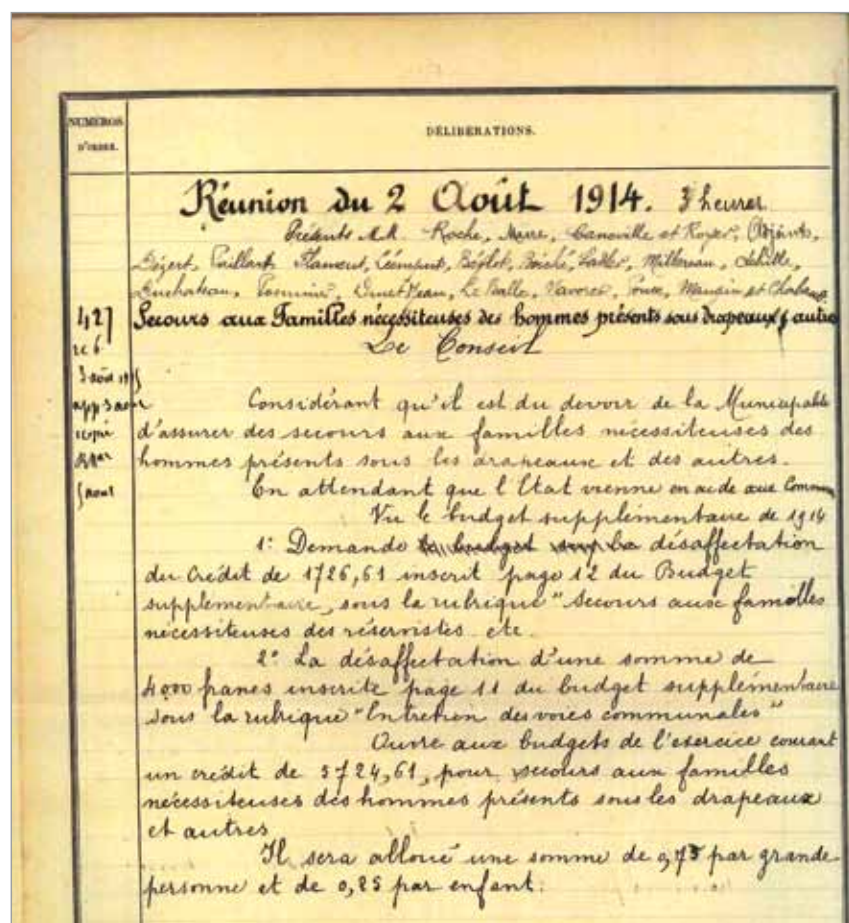 NUMÉROS
D'ORDRE.
DÉLIBÉRATIONS.
Réunion du 2 Août 1914. 3 heures
Présents M.M. Roche, Maire, Canoville et Royer, Adjoints,
Bézert, Paillart, Flament, Clément, Béglot, Boiché, Millereau,
Duchateau, Le Balle, Mangin et Chabane
427 Secours aux Familles nécessiteuses des hommes présents sous drapeaux & autres
Le Conseil
3 août
app 3 aout
copié
5 aout
Considérant qu'il est du devoir de la Municipalité
d'assurer des secours aux familles nécessiteuses des
hommes présents sous les drapeaux et des autres.
En attendant que l'Etat vienne en aide aux Communes
Vu le budget supplémentaire de 1914
1: Demande le budget sup la désaffectation
du Crédit de 1726,61 inscrit page 12 du Budget
supplémentaire, sous la rubrique "Secours aux familles
nécessiteuses des réservistes etc.
2° La désaffectation d'une somme de
4000 francs inscrite page 11 du budget supplémentaire
sous la rubrique "Entretien des voies communales"
Ouvre aux budgets de l'exercice courant
un crédit de 5724,61, pour secours aux familles
nécessiteuses des hommes présents sous les drapeaux
et autres
Il sera alloué une somme de 0,75 par grande
personne et de 0,25 par enfant.